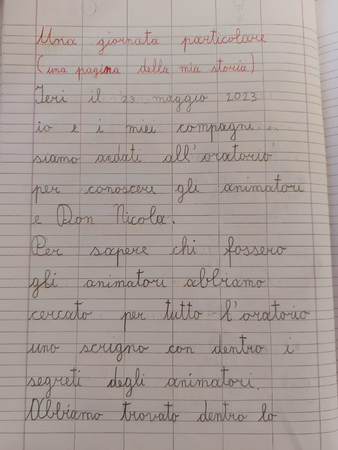 Una giornata particolare
(una pagina della mia storia)
Ieri il 23 maggio 2023
io e i miei compagni
siamo andati all'oratorio
per conoscere gli animatori
e Don Nicola.
Per sapere chi fossero
gli animatori abbiamo
cercato per tutto l'oratorio
uno scrigno con dentro i
segreti degli animatori.
Abbiamo trovato dentro lo